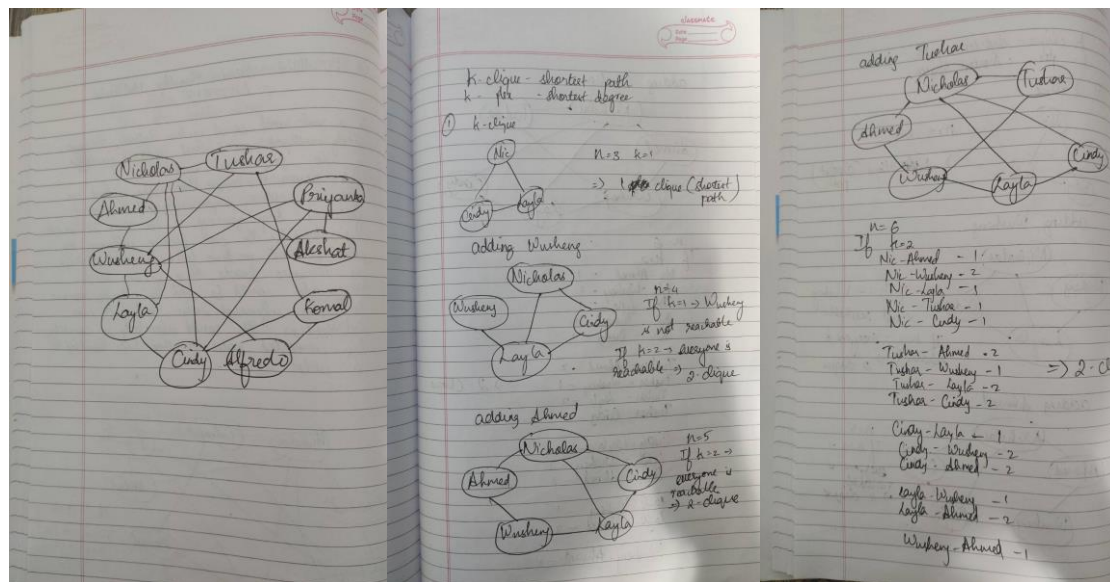 Nicholas
Tushar
Priyanka
Ahmed
Akshat
Wusheng
Layla
Komal
Cindy
Alfredo
classmate
Date
Page
k-clique - shortest path
k - plex - shortest degree
① k-clique
Nic
n=3 k=1
Cindy
Layla
=> 1 clique (shortest path)
adding Wusheng
Nicholas
n=4
Wusheng
If k=1 → Wusheng
Cindy
is not reachable
Layla
If k=2 → everyone is
reachable =>
2-clique
adding Ahmed
Nicholas
n=5
If k=2 →
Ahmed
Cindy
everyone is
reachable
=> 2-clique
Wusheng
Layla
adding Tushar
Nicholas
Tushar
Ahmed
Cindy
Wusheng
Layla
n=6
If k=2
Nic-Ahmed - 1
Nic-Wusheng - 2
Nic-Layla - 1
Nic - Tushar - 1
Nic - Cindy - 1
Tushar - Ahmed - 2
Tushar - Wusheng - 1 => 2-cl
Tushar - Layla - 2
Tushar - Cindy - 2
Cindy-Layla - 1
Cindy-Wusheng - 2
Cindy-Ahmed - 2
Layla-Wusheng - 1
Layla-Ahmed - 2
Wusheng-Ahmed - 1